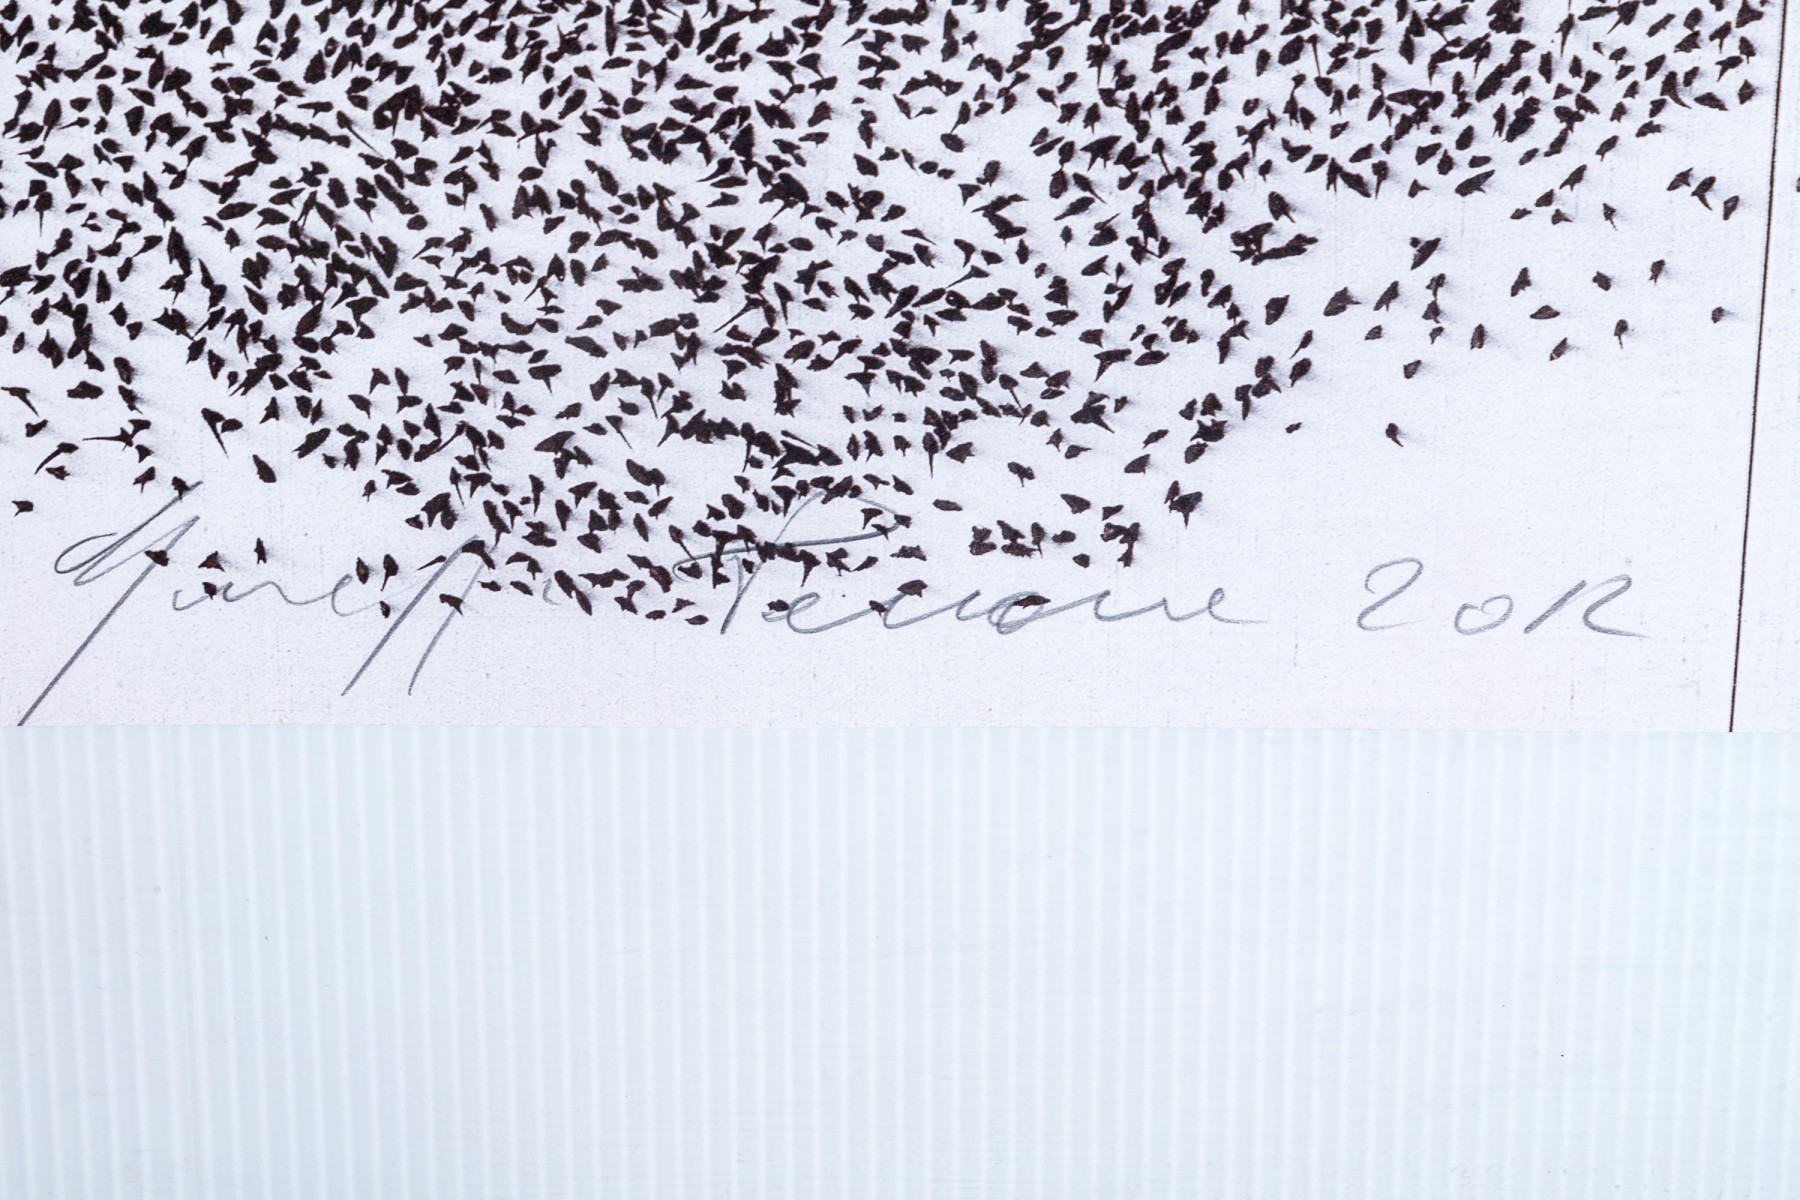 Giuseppe Penone 2012